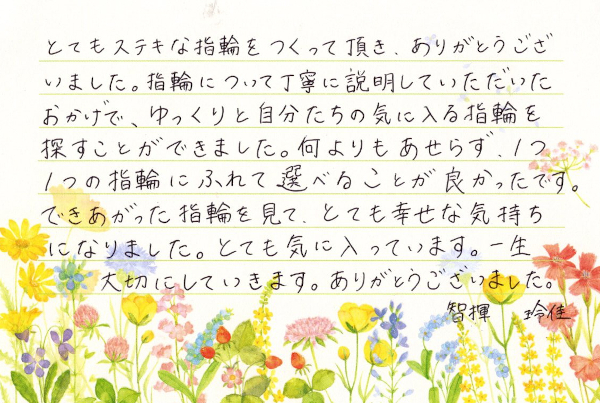 とてもステキな指輪をつくって頂き、ありがとうござ
いました。指輪について丁寧に説明していただいた
おかげで、ゆっくりと自分たちの気に入る指輪を
探すことができました。何よりもあせらず、1つ
1つの指輪にふれて選べることが良かったです。
できあがった指輪を見て、とても幸せな気持ち
になりました。とても気に入っています。一生
大切にしていきます。ありがとうございました。
智揮 玲佳